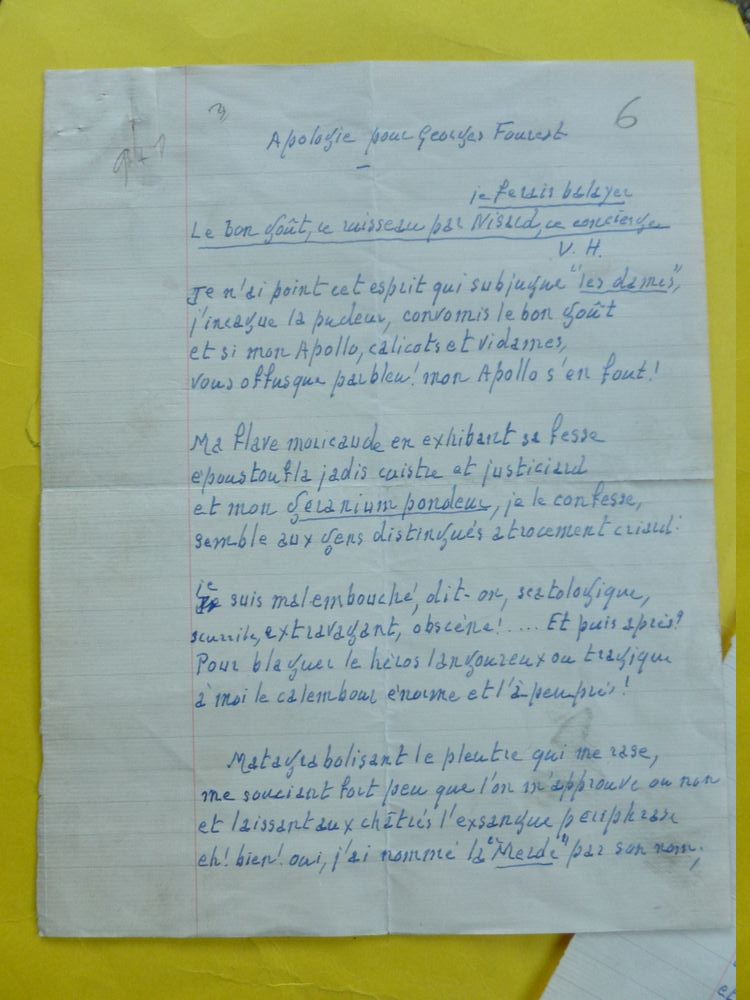 6
Apologie pour Georges Fourest
je ferais balayer
Le bon goût, ce ruisseau par Nisard, ce concierge
V. H.
Je n'ai point cet esprit qui subjugue "les dames",
j'incague la pudeur, convomis le bon goût
et si mon Apollo, calicots et vidames,
vous offusque parbleu! mon Apollo s'en fout!
Ma flave moricaude en exhibant sa fesse
epoustoufla jadis cuistre et justiciard
et mon geranium pondeur, je le confesse,
semble aux gens distingués atrocement criard:
je suis mal embouché, dit-on, scatologique,
scurrile, extravagant, obscène!.... Et puis après?
Pour blaguer le héros langoureux ou tragique
à moi le calembour énorme et l'à-peu-près!
Matagrabolisant le pleutre qui me rase,
me souciant fort peu que l'on m'approuve ou non
et laissant aux châtrés l'exsangue periphrase
eh! bien! oui, j'ai nommé la "Merde" par son nom;